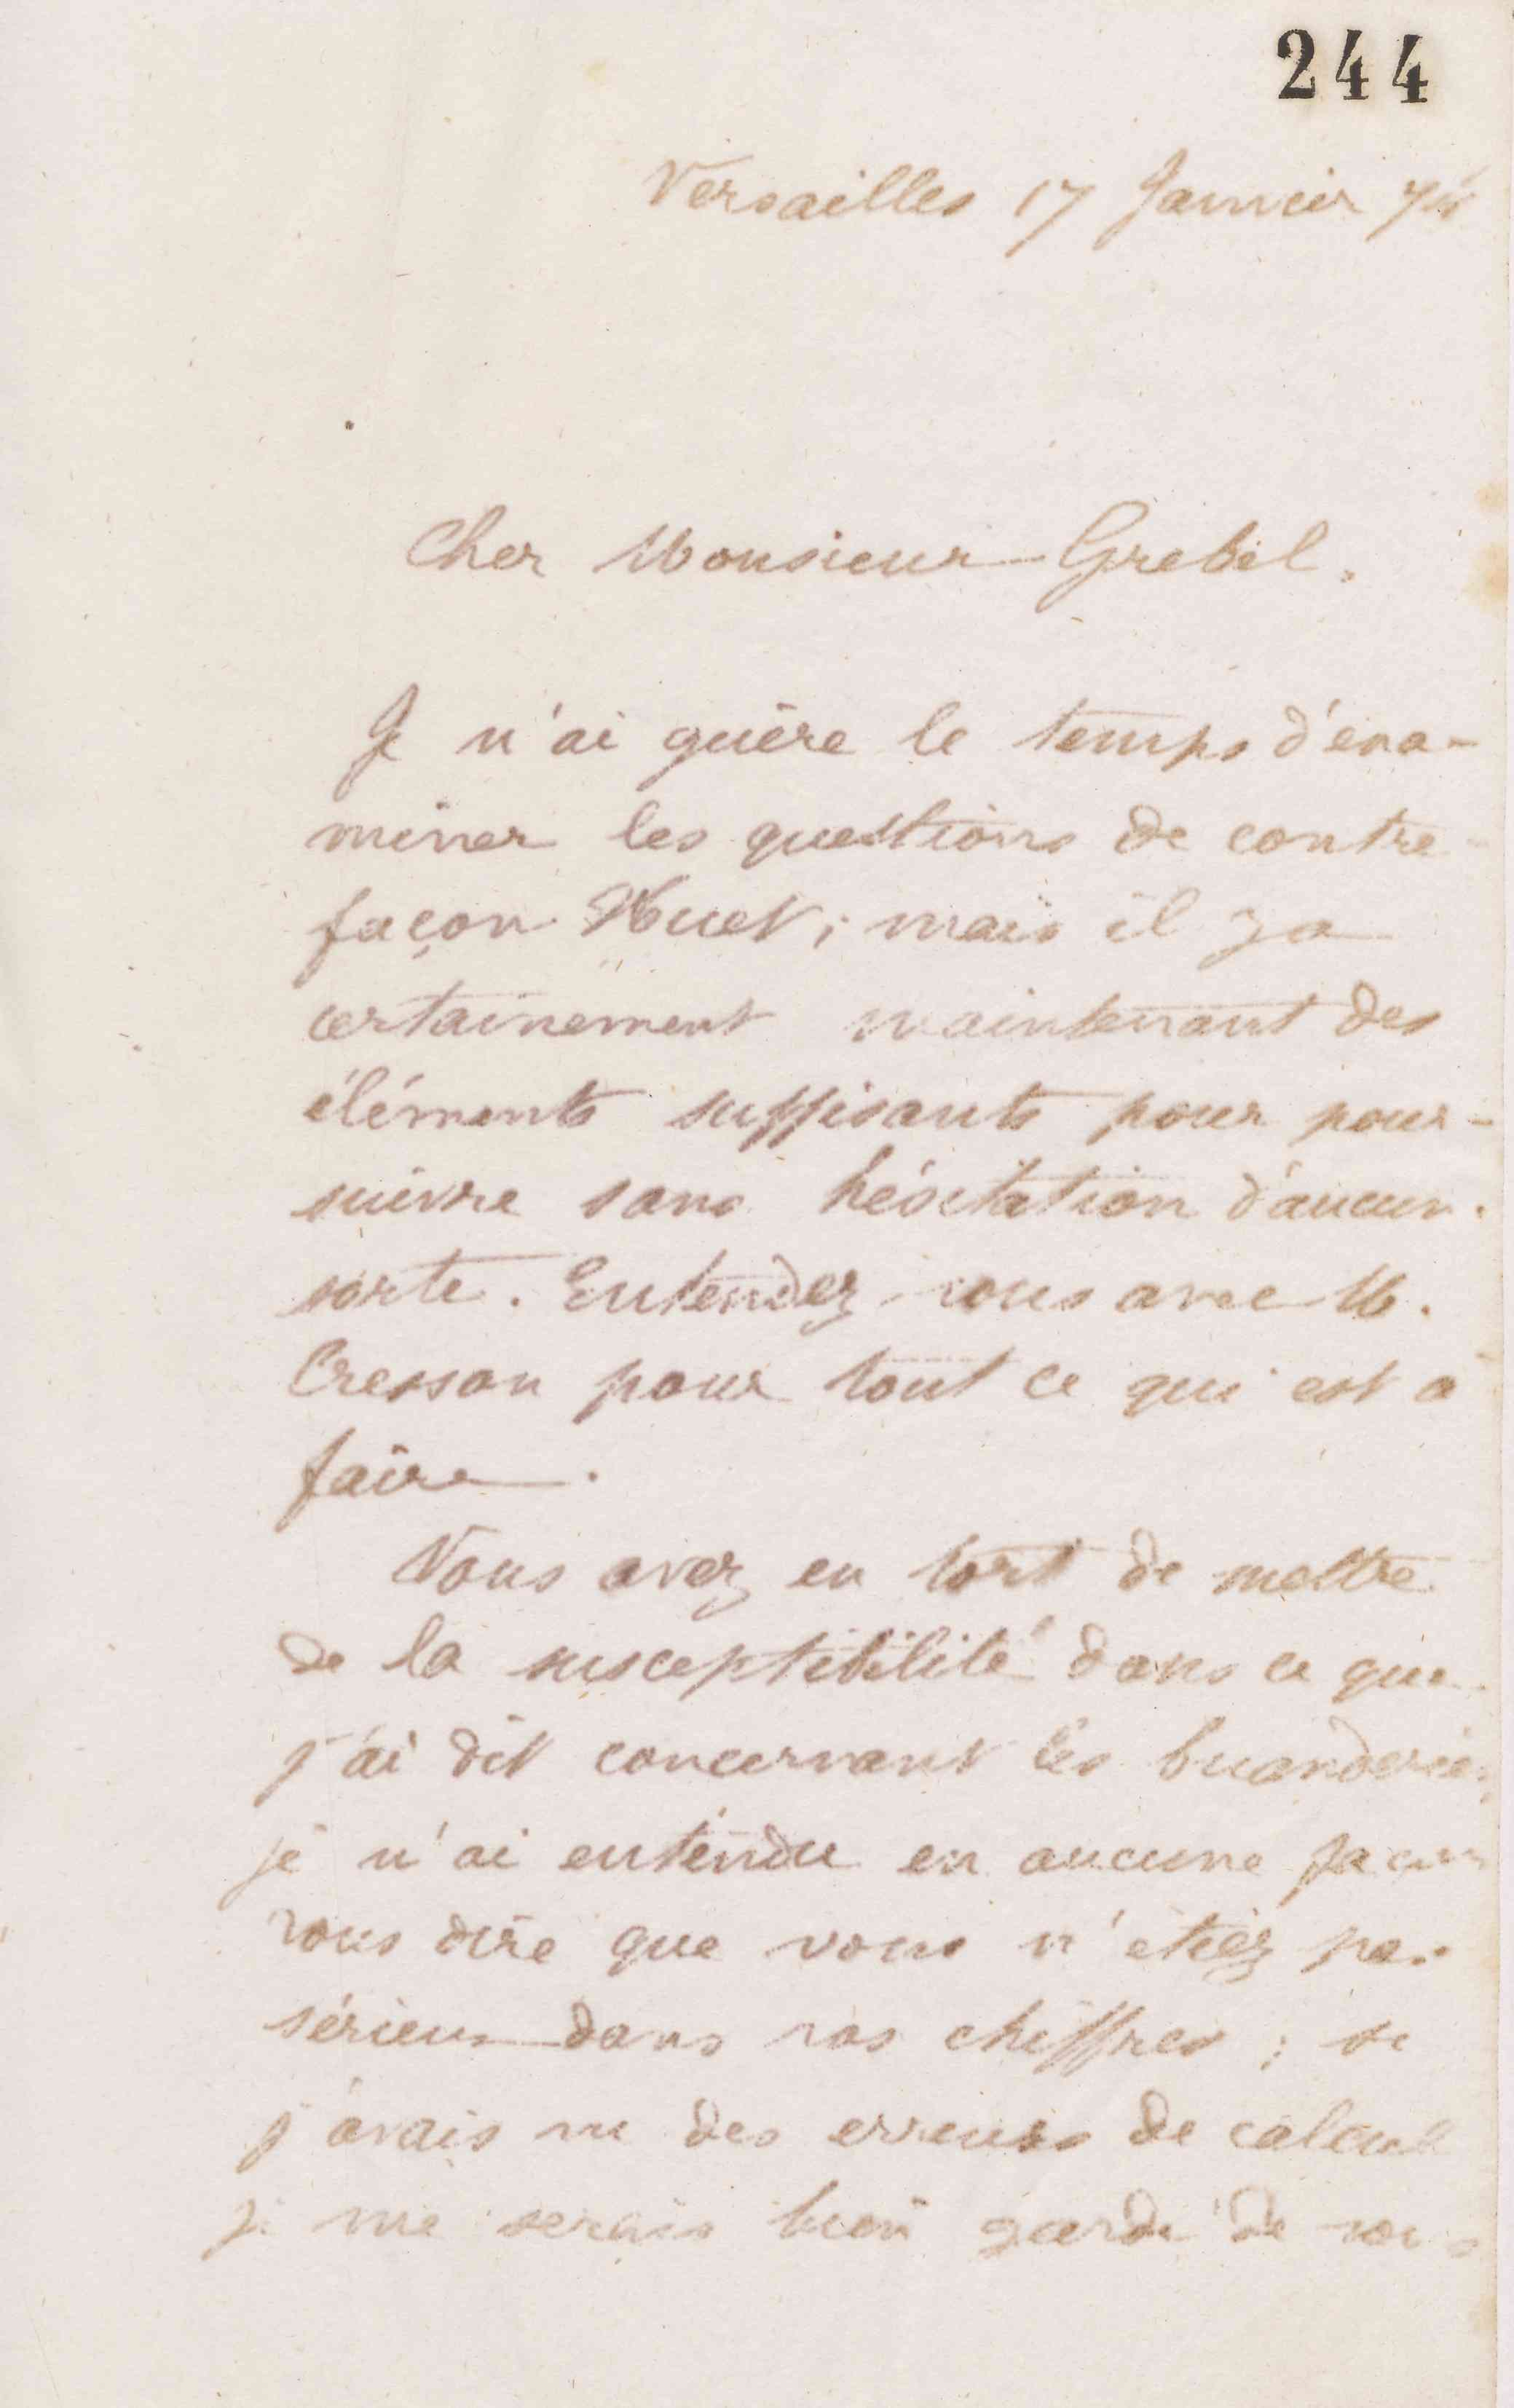 244
Versailles 17 Janvier 74
Cher Monsieur Grebel.
Je n'ai guère le temps d'exa-
miner les questions de contre-
façon Huet; mais il y a
certainement maintenant des
éléments suffisants pour pour-
suivre sans hésitation d'aucun
sorte. Entendez vous avec M.
Cresson pour tout ce qui est à
faire.
Vous avez eu tort de mettre
de la susceptibilité dans ce que
j'ai dit concernant les buanderies,
je n'ai entendu en aucune façon
vous dire que vous n'étiez pas
sérieux dans vos chiffres; si
j'avais vu des erreurs de calcul
je me serais bien gardé de vous